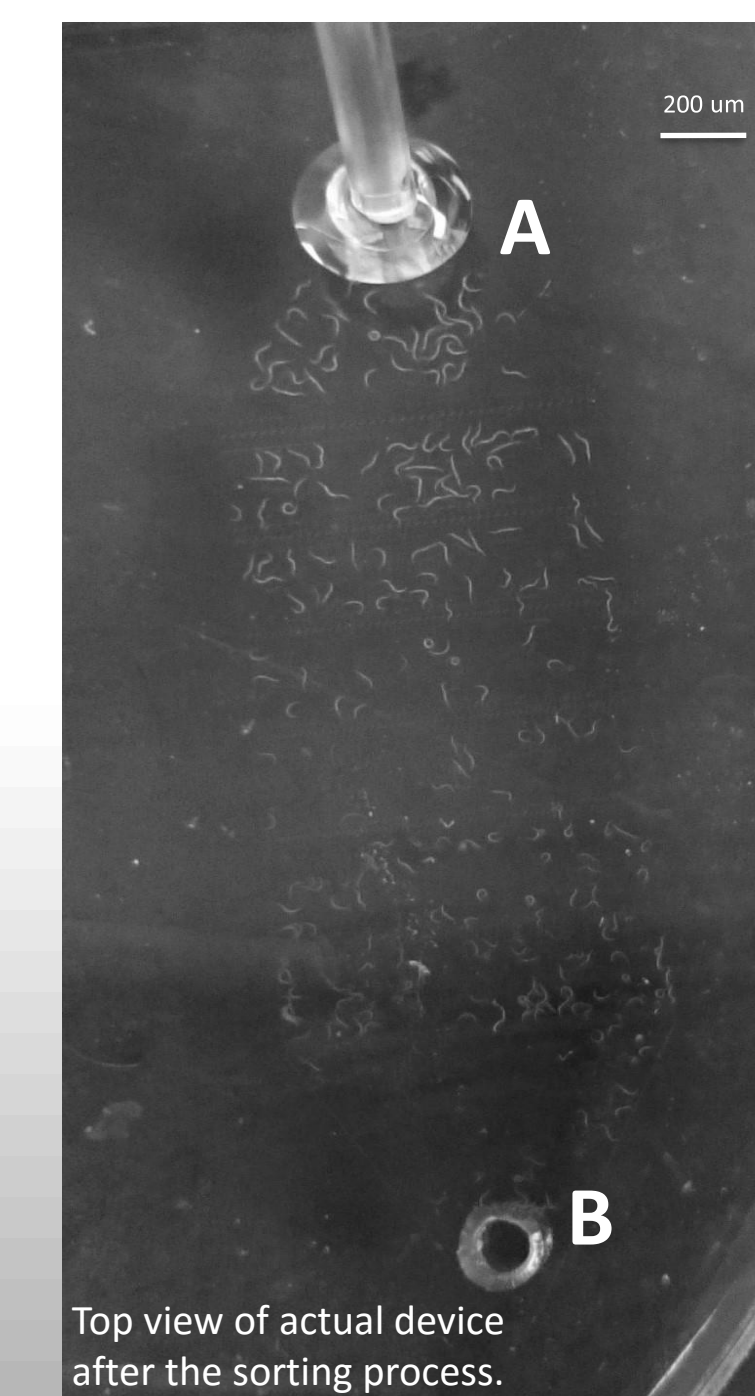 200 um
A
B
Top view of actual device
after the sorting process.